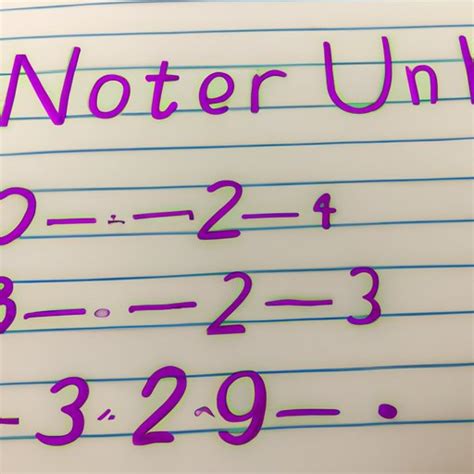 Noter Un
0—.—-2—4
3—.—2—3
-3.2.9—.